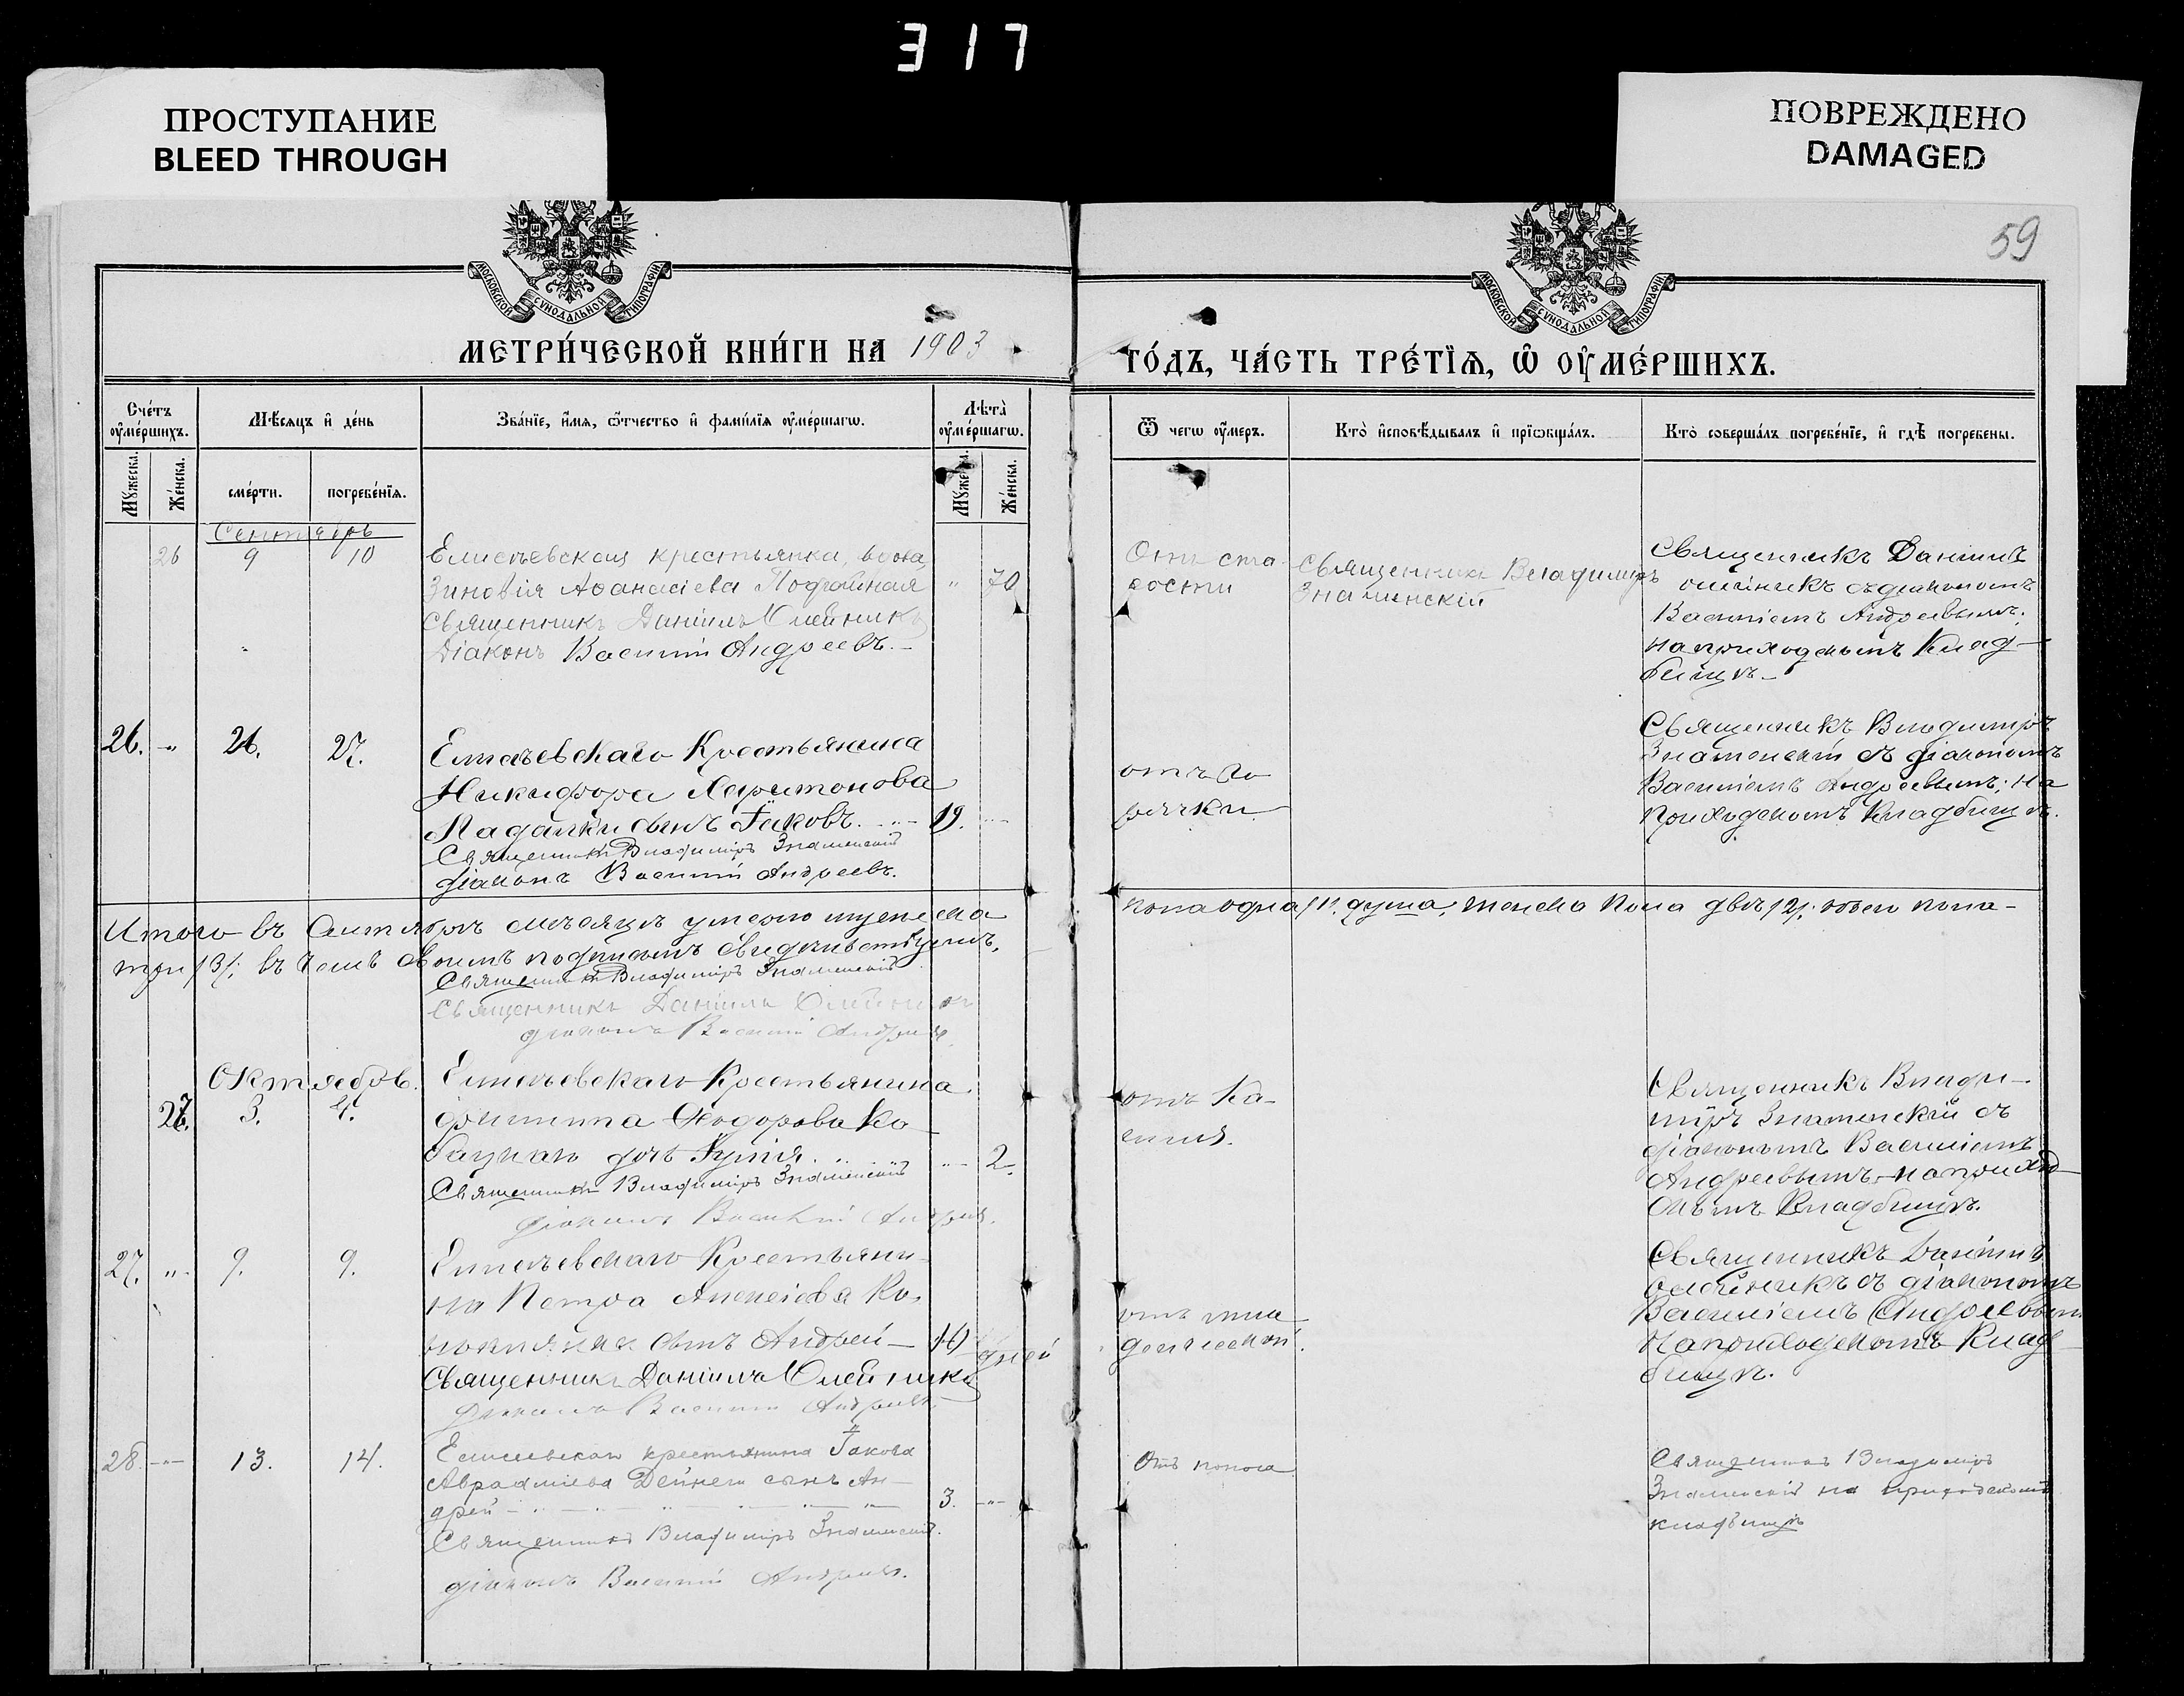 317
ПРОСТУПАНИЕ
BLEED THROUGH
ПОВРЕЖДЕНО
DAMAGED
59
МОСКОВСКОЙ СѴНОДАЛЬНОЙ ТИПОГРАФІИ
МОСКОВСКОЙ СѴНОДАЛЬНОЙ ТИПОГРАФІИ
МЕТРИ́ЧЕСКОЙ КНИ́ГИ НА 1903
ГО́ДЪ, ЧА́СТЬ ТРЕ́ТЇѦ, Ѡ ОУМЕ́РШИХЪ.
Сче́тъ оуме́ршихъ.
Мѣ́сѧцъ и де́нь
Зва́нїе, и́мѧ, ѻ҆́тчество и фами́лїѧ оуме́ршагѡ.
Лѣта̀ оуме́ршагѡ.
Ѿ чегѡ оу́меръ.
Кто̀ и҆сповѣ́дывалъ и прїѡбща́лъ.
Кто̀ соверша́лъ погребе́нїе, и гдѣ̀ погребены.
Мꙋ́жеска.
Же́нска.
сме́рти.
погребе́нїѧ.
Мꙋ́жеска.
Же́нска.
Сентябрь
26 9 10 Елисѣевская крестьянка, вдова,
Зиновія Аѳанасіева " 70
Священникъ Даніилъ Олейникъ
Діаконъ Василій Андреевъ.
Отъ ста
рости
Священникъ Владимиръ
Знаменскій
Священникъ Даніилъ
Олейникъ съ діакономъ
Василіемъ Андреевымъ;
на приходскомъ клад-
бищѣ.
26. " 26. 27. Елисѣевскаго Крестьянина
Никифора Харитонова
сынъ Іаковъ. 19. "
Священникъ Владиміръ Знаменскій
діаконъ Василій Андреевъ.
отъ го
рячки
Священникъ Владиміръ
Знаменскій съ діакономъ
Василіемъ Андреевымъ; на
приходскомъ кладбищѣ.
Итого въ Сентябрѣ мѣсяцѣ умерло мужеска
пола одна /1/. душа, женска пола двѣ /2/. всего пола
три /3/. въ чемъ своимъ подписомъ свидѣтельствуемъ,
Священникъ Владиміръ Знаменскій
Священникъ Даніилъ Олейникъ
діаконъ Василій Андреевъ.
Октябрь.
27. 3. 4. Елисѣевскаго Крестьянина
Филиппа Ѳеодорова Ко
дочь " 2.
Священникъ Владиміръ Знаменскій
діаконъ Василій Андреевъ.
отъ ка-
шля.
Священникъ Влади-
міръ Знаменскій съ
діакономъ Василіемъ
Андреевымъ на приход-
скомъ кладбищѣ.
27. " 9. 9. Елисѣевскаго Крестьяни-
на Петра Алексіева Ко-
сынъ Андрей дней
Священникъ Даніилъ Олейникъ
діаконъ Василій Андреевъ.
отъ мла
денческой.
Священникъ Даніилъ
Олейникъ съ діакономъ
Василіемъ Андреевым
на приходскомъ клад
бищѣ.
28. " 13. 14. крестьянина Іакова
Аврааміева сынъ Ан-
дрей 3. "
Священникъ Владиміръ Знаменскій.
діаконъ Василій Андреевъ.
Отъ поноса
Священникъ Владиміръ
Знаменскій на приходскомъ
кладбищѣ